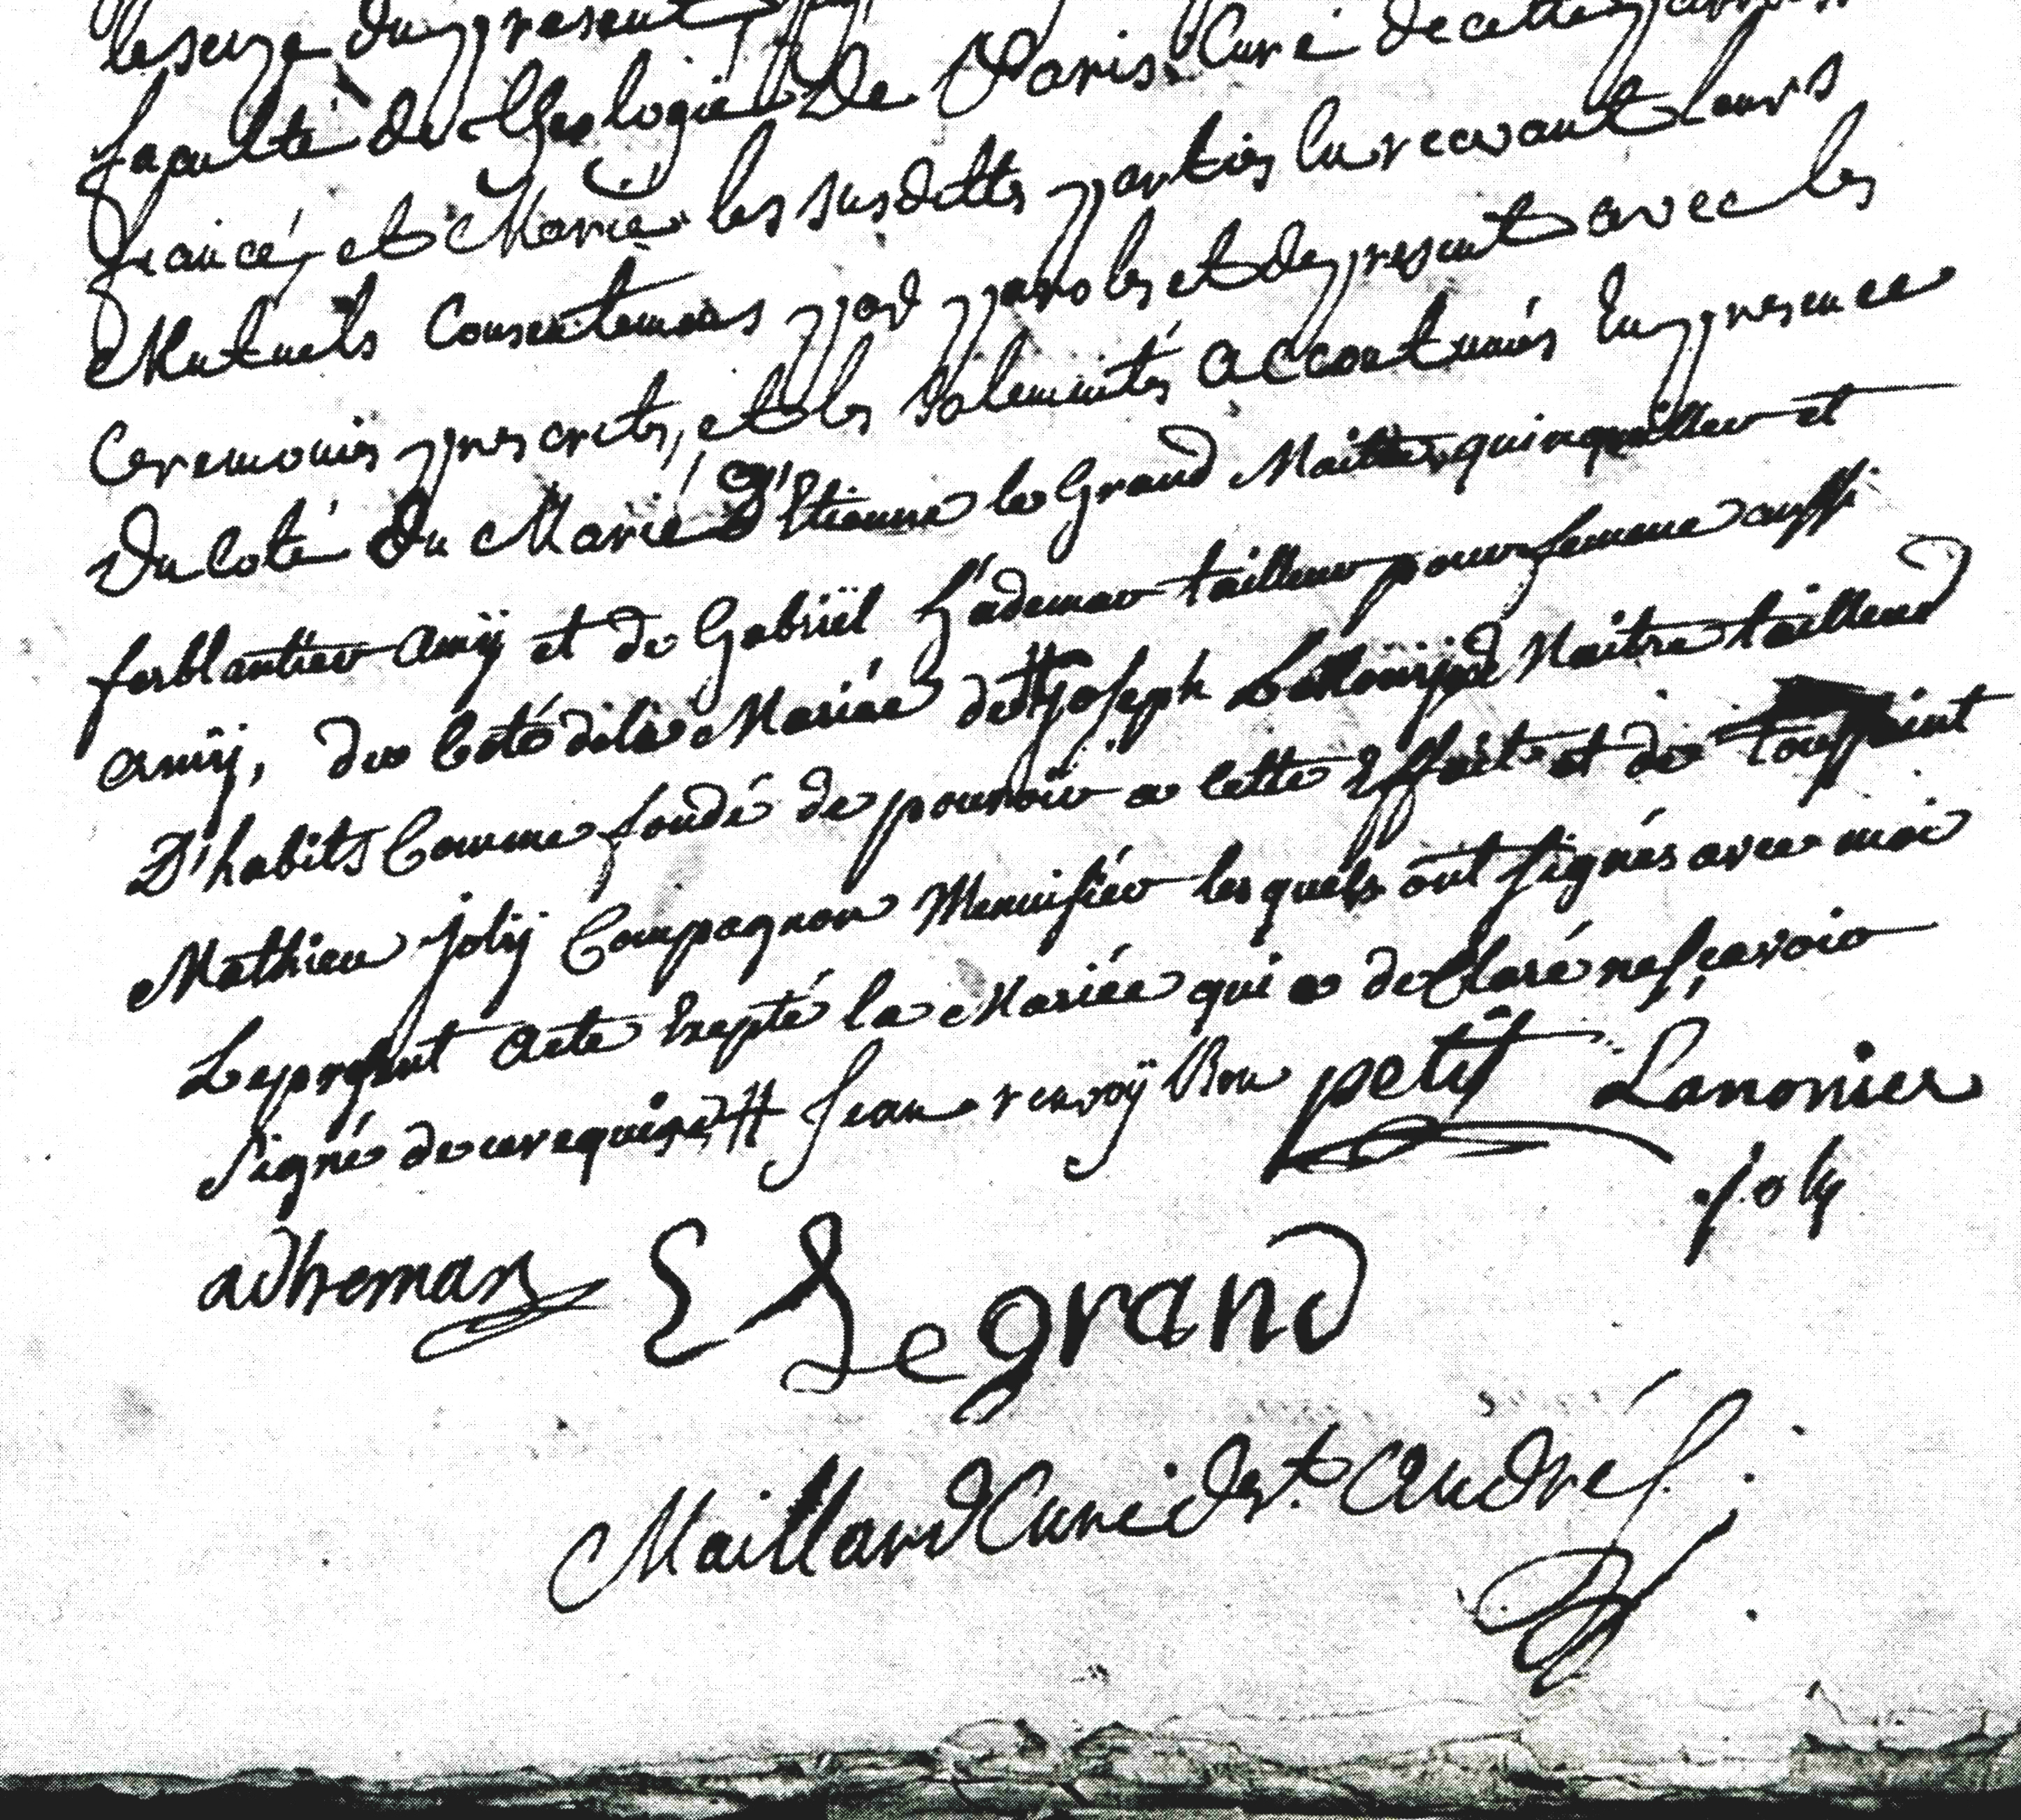 le seize du present
faculté de Theologie De Paris Curé de cette
fiancé, et Marié les susdittes parties lu recevant leurs
Mutuels Consentemens par paroles et de present avec les
Ceremonies prescrites, et les Solemnités accoutumées En presence
Du Coté du Marié D'Etienne le Grand Maitre quinquillier et
ferblantier amÿ et de Gabriël L'ademar tailleur pour femme aussi
amÿ, du Coté dela Mariée de # Joseph Maitre tailleur
D'habits Comme fondé de pouvoir a cette Effait et de toussaint
Mathieu Jolÿ Compagnon Menuisier les quels ont signés avec moi
Le present acte Exepté la Mariée qui a declaré ne sçavoir
signé de ce requise # Jean renvoÿ Bon petit Lanonier
joly
adheman E Legrand
Maillard Curé de St. André